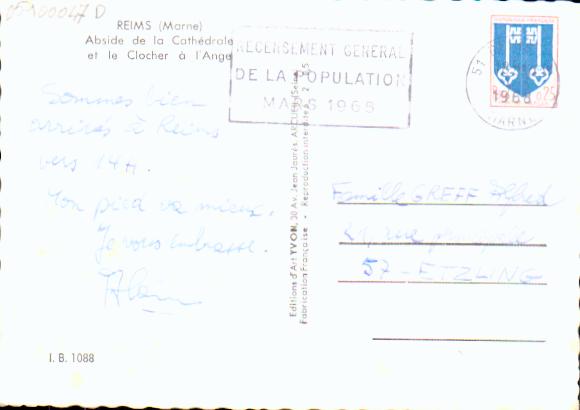 REIMS (Marne)
Abside de la Cathédrale
et le Clocher à l'Ange
RECENSEMENT GENERAL
DE LA POPULATION
MARS 1968
0,25
1968
MARNE
Sommes bien
arrivés à Reims
vers 14H.
Mon pied va mieux.
Je vous embrasse.
Alain
Editions d'Art YVON, 30 Av. Jean Jaurès, ARCUEIL (Seine)
Fabrication Française - Reproduction interdite
Famille GREFF Alfred
21, rue principale
57 - ETZLING
I. B. 1088